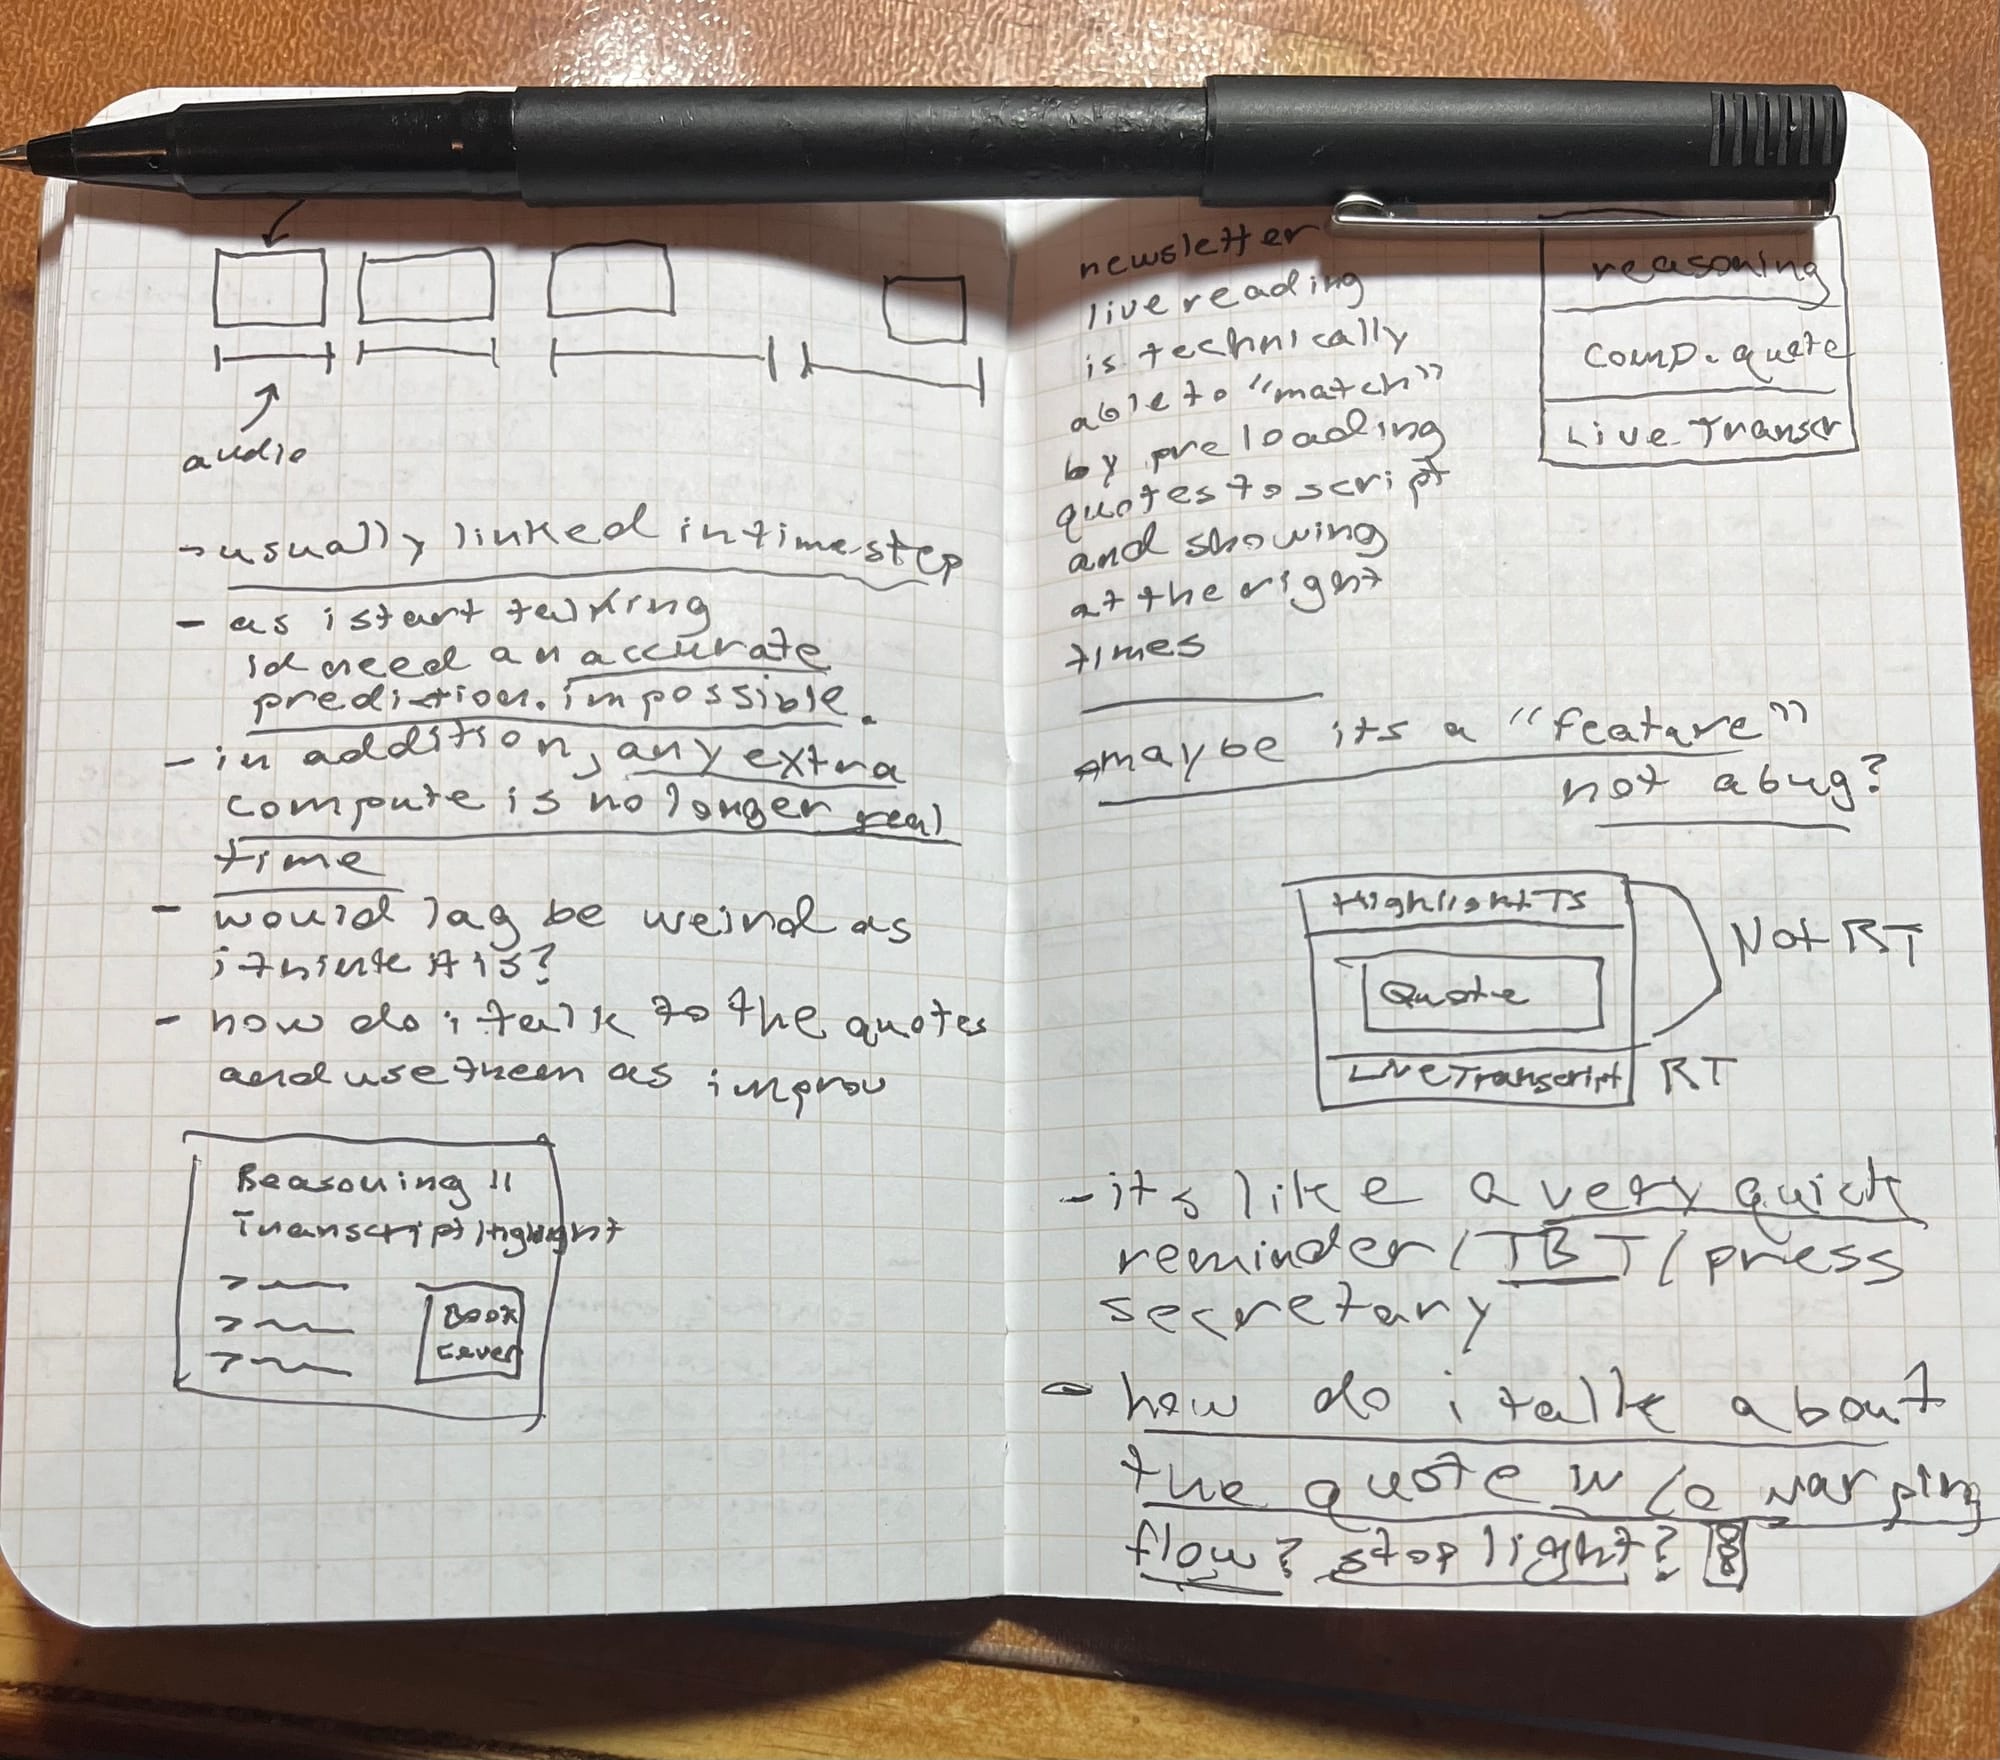 audio
- usually linked in timestep
- as i start talking
id need an accurate
prediction. impossible.
- in addition, any extra
compute is no longer real
time
- would lag be weird as
i think it is?
- how do i talk to the quotes
and use them as improv
Reasoning
Transcript Highlight
Book
Cover
newsletter
live reading
is technically
able to "match"
by preloading
quotes to script
and showing
at the right
times
reasoning
comp. quote
Live Transcr
maybe its a "feature"
not a bug?
Highlight TS
Quote
Live Transcript
Not RT
RT
- its like a very quick
reminder / TBT / press
secretary
- how do i talk about
the quote w/o warping
flow? stop light?